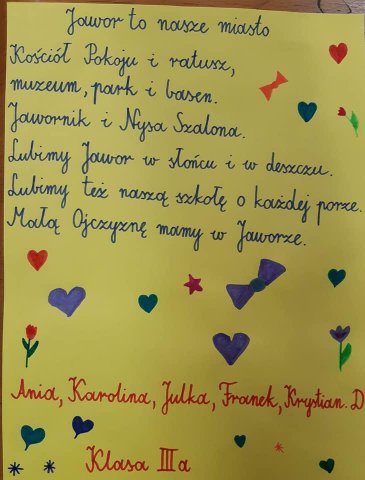 Jawor to nasze miasto
Kościół Pokoju i ratusz,
muzeum, park i basen.
Jawornik i Nysa Szalona.
Lubimy Jawor w słońcu i w deszczu.
Lubimy też naszą szkołę o każdej porze.
Małą Ojczyznę mamy w Jaworze.
Ania, Karolina, Julka, Franek, Krystian. D
Klasa IIIa